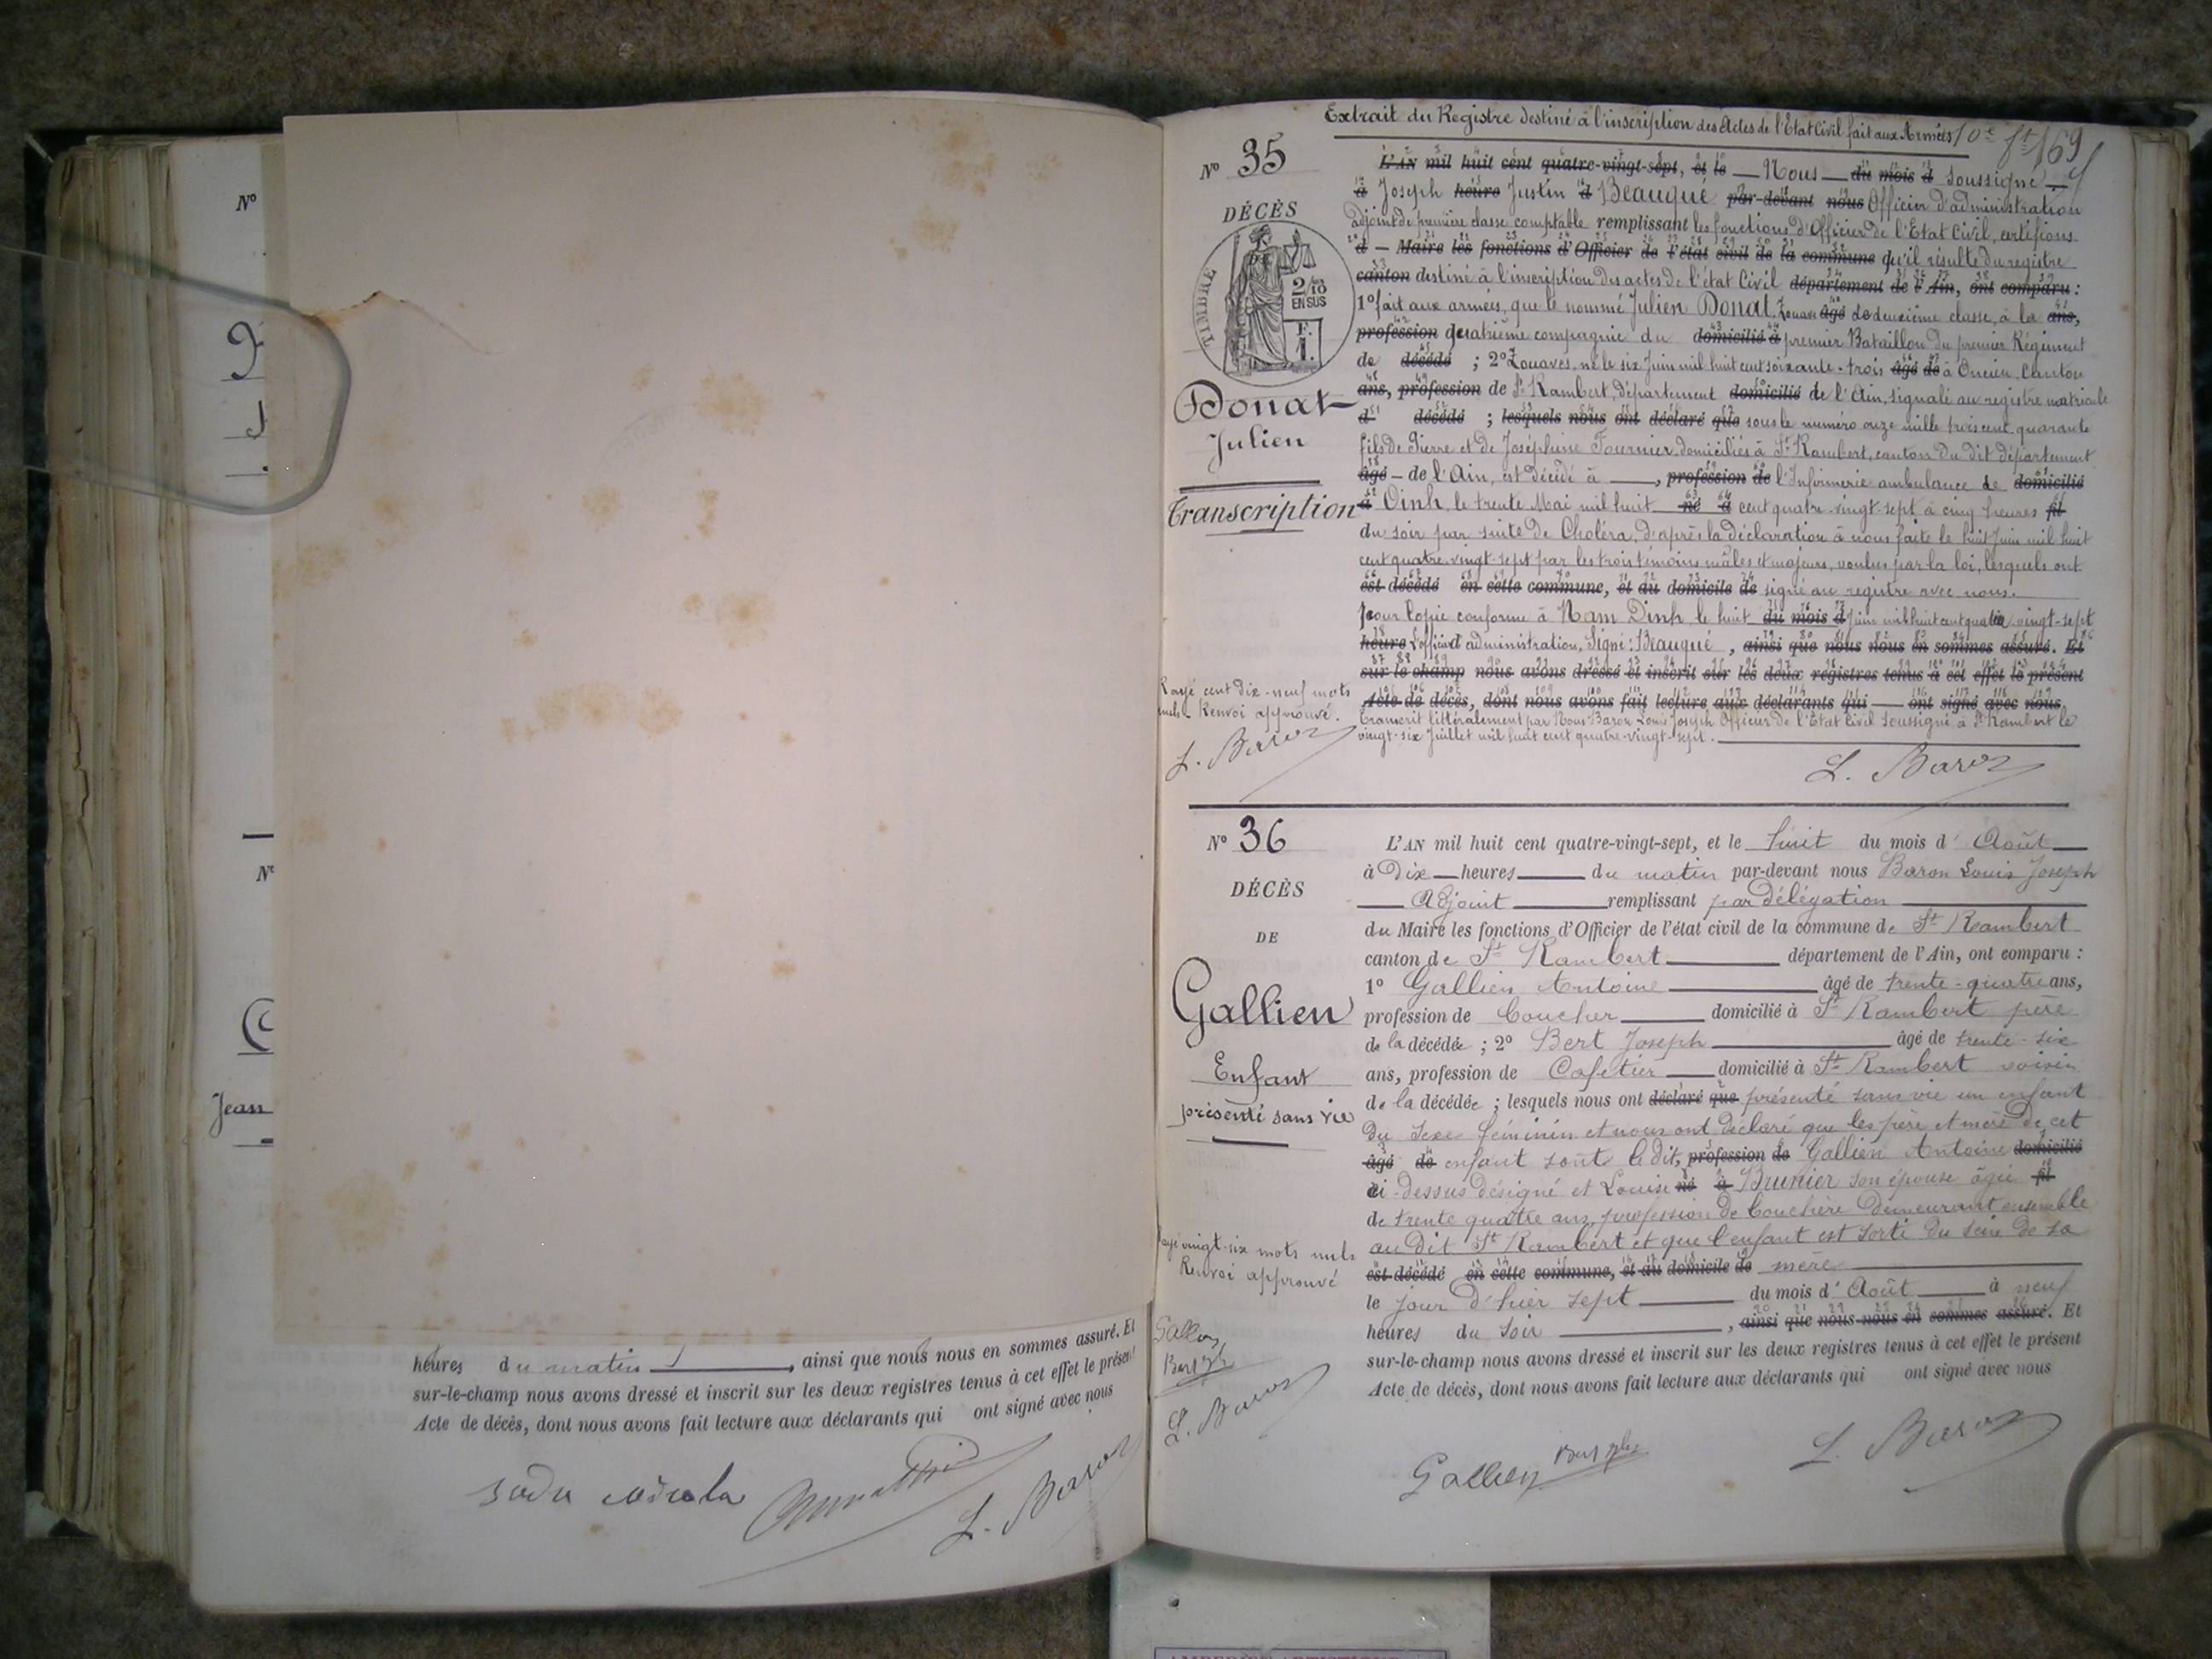 Nº
Jean
heures du matin, ainsi que nous nous en sommes assuré. Et
sur-le-champ nous avons dressé et inscrit sur les deux registres tenus à cet effet le présent
Acte de décès, dont nous avons fait lecture aux déclarants qui ont signé avec nous
L. Baron
Extrait du Registre destiné à l'inscription des Actes de l'Etat Civil fait aux Armées 10e ft 169
Nº 35
DÉCÈS
TIMBRE
2/10
EN SUS
Donat
Julien
Transcription
L'AN mil huit cent quatre-vingt-sept, et le — Nous — du mois d soussigné
à Joseph heure Justin d Beauqué par-devant nous Officier d'administration
adjoint de première classe comptable remplissant les fonctions d'Officier de l'Etat Civil, certifions
d — Maire les fonctions d'Officier de l'état civil de la commune qu'il résulte du registre
canton destiné à l'inscription des actes de l'état Civil département de l'Ain, ont comparu :
1º fait aux armées, que le nommé Julien Donat, Zouave âgé de deuxième classe, à la ans,
profession quatrième compagnie du domicilié à premier Bataillon du premier Régiment
de décédé ; 2º Zouaves, né le six Juin mil huit cent soixante-trois âgé de à Oncieu, Canton
ans, profession de St Rambert, département domicilié de l'Ain, signalé au registre matricule
d décédé ; lesquels nous ont déclaré que sous le numéro onze mille trois cent quarante
fils de Pierre et de Joséphine Fournier domiciliés à St Rambert, canton du dit département
âgé — de l'Ain, est décédé à —, profession de l'Infirmerie ambulance de domicilié
à Dinh, le trente Mai mil huit né à cent quatre-vingt-sept à cinq heures fil
du soir par suite de Choléra, d'après la déclaration à nous faite le huit Juin mil huit
cent quatre-vingt-sept par les trois témoins mâles et majeurs, voulus par la loi, lesquels ont
est décédé en cette commune, et au domicile de signé au registre avec nous.
Pour Copie conforme à Nam Dinh, le huit du mois d juin mil huit cent quatre-vingt-sept
heure l'officier d'administration, Signé : Beauqué, ainsi que nous nous en sommes assuré. Et
sur-le-champ nous avons dressé et inscrit sur les deux registres tenus à cet effet le présent
Acte de décès, dont nous avons fait lecture aux déclarants qui — ont signé avec nous
Transcrit littéralement par Nous Baron Louis Joseph Officier de l'Etat Civil soussigné à St Rambert le
vingt-six Juillet mil huit cent quatre-vingt-sept.
Rayé cent dix-neuf mots
nuls. Renvoi approuvé.
L. Baron
L. Baron
Nº 36
DÉCÈS
DE
Gallien
Enfant
présenté sans vie
L'AN mil huit cent quatre-vingt-sept, et le huit du mois d' Août
à Dix heures du matin par-devant nous Baron Louis Joseph
Adjoint remplissant par délégation
du Maire les fonctions d'Officier de l'état civil de la commune de St Rambert
canton de St Rambert département de l'Ain, ont comparu :
1º Gallien Antoine âgé de trente-quatre ans,
profession de Boucher domicilié à St Rambert père
de la décédée ; 2º Bert Joseph âgé de trente-six
ans, profession de Cafetier domicilié à St Rambert voisin
de la décédée ; lesquels nous ont déclaré que présenté sans vie un enfant
du sexe féminin et nous ont déclaré que les père et mère de cet
âgé de enfant sont le dit, profession de Gallien Antoine domicilié
ci-dessus désigné et Louise né à Brunier son épouse âgée fil
de trente quatre ans, profession de bouchère demeurant ensemble
au dit St Rambert et que l'enfant est sorti du sein de sa
est décédé en cette commune, et au domicile de mère
le jour d'hier sept du mois d' Août à neuf
heures du soir, ainsi que nous nous en sommes assuré. Et
sur-le-champ nous avons dressé et inscrit sur les deux registres tenus à cet effet le présent
Acte de décès, dont nous avons fait lecture aux déclarants qui ont signé avec nous
Rayé vingt-six mots nuls
Renvoi approuvé
Gallien
L. Baron
Gallien
L. Baron